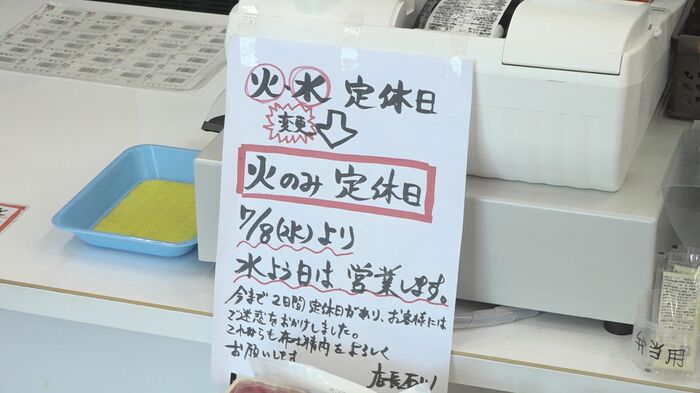 火・水 定休日
変更
火のみ 定休日
7/8(水)より
水よう日は 営業します。
今まで 2日間 定休日があり、お客様には
ご迷惑をおかけしました。
これからも 精肉をよろしく
お願いします
店長 石川
弁当用